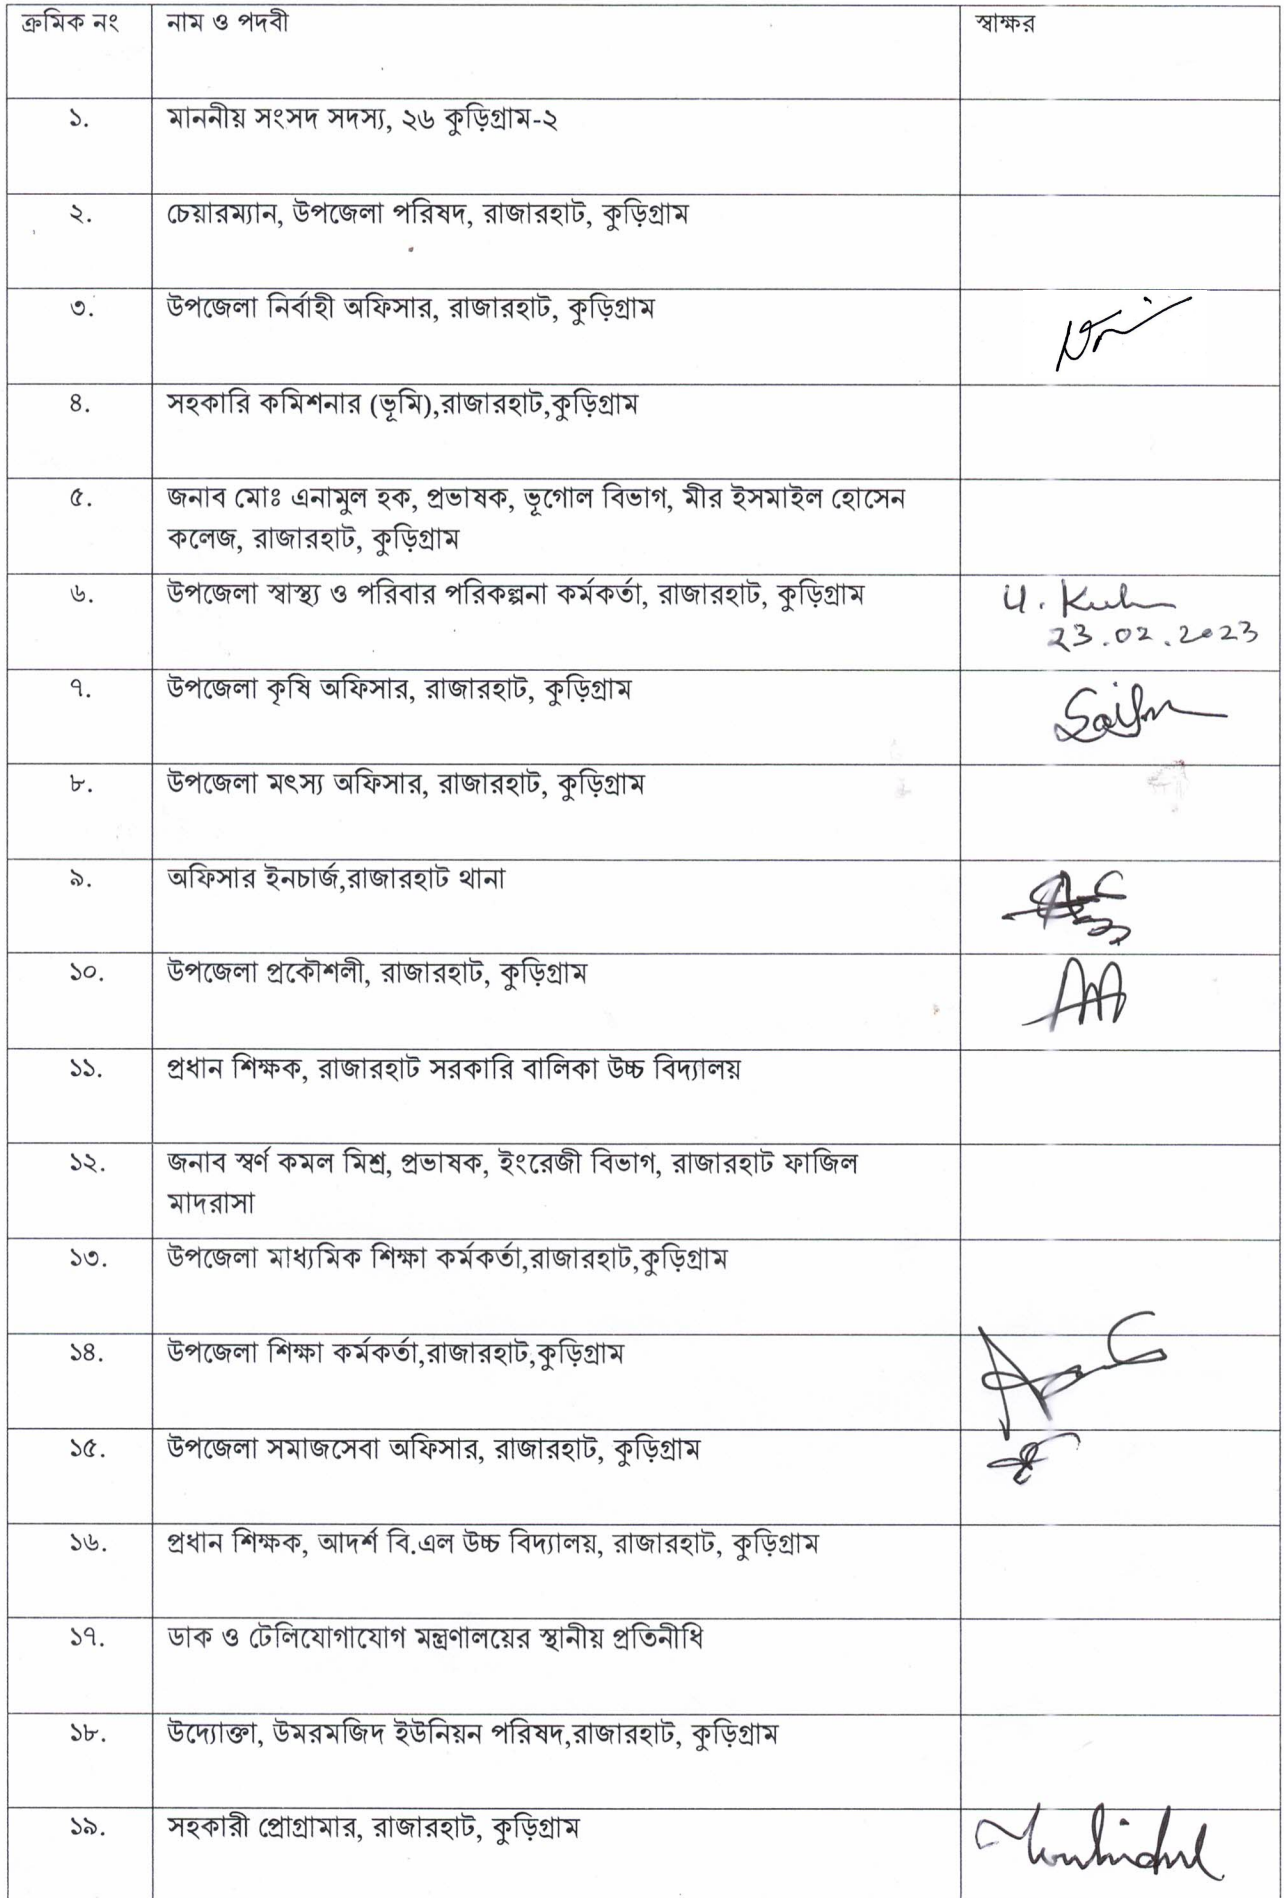 ক্রমিক নং নাম ও পদবী স্বাক্ষর
১. মাননীয় সংসদ সদস্য, ২৬ কুড়িগ্রাম-২
২. চেয়ারম্যান, উপজেলা পরিষদ, রাজারহাট, কুড়িগ্রাম
৩. উপজেলা নির্বাহী অফিসার, রাজারহাট, কুড়িগ্রাম
৪. সহকারি কমিশনার (ভূমি),রাজারহাট,কুড়িগ্রাম
৫. জনাব মোঃ এনামুল হক, প্রভাষক, ভূগোল বিভাগ, মীর ইসমাইল হোসেন
কলেজ, রাজারহাট, কুড়িগ্রাম
৬. উপজেলা স্বাস্থ্য ও পরিবার পরিকল্পনা কর্মকর্তা, রাজারহাট, কুড়িগ্রাম
23.02.2023
৭. উপজেলা কৃষি অফিসার, রাজারহাট, কুড়িগ্রাম
৮. উপজেলা মৎস্য অফিসার, রাজারহাট, কুড়িগ্রাম
৯. অফিসার ইনচার্জ,রাজারহাট থানা
১০. উপজেলা প্রকৌশলী, রাজারহাট, কুড়িগ্রাম
১১. প্রধান শিক্ষক, রাজারহাট সরকারি বালিকা উচ্চ বিদ্যালয়
১২. জনাব স্বর্ণ কমল মিশ্র, প্রভাষক, ইংরেজী বিভাগ, রাজারহাট ফাজিল
মাদরাসা
১৩. উপজেলা মাধ্যমিক শিক্ষা কর্মকর্তা,রাজারহাট,কুড়িগ্রাম
১৪. উপজেলা শিক্ষা কর্মকর্তা,রাজারহাট,কুড়িগ্রাম
১৫. উপজেলা সমাজসেবা অফিসার, রাজারহাট, কুড়িগ্রাম
১৬. প্রধান শিক্ষক, আদর্শ বি.এল উচ্চ বিদ্যালয়, রাজারহাট, কুড়িগ্রাম
১৭. ডাক ও টেলিযোগাযোগ মন্ত্রণালয়ের স্থানীয় প্রতিনীধি
১৮. উদ্যোক্তা, উমরমজিদ ইউনিয়ন পরিষদ,রাজারহাট, কুড়িগ্রাম
১৯. সহকারী প্রোগ্রামার, রাজারহাট, কুড়িগ্রাম